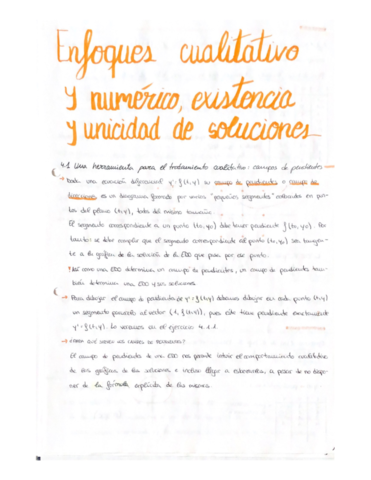 Enfoques cualitativo
y numérico, existencia
y unicidad de soluciones
4.1 Una herramienta para el tratamiento cualitativo: campos de pendientes
Dada una ecuación diferencial y' = f(t,y) su campo de pendientes o campo de
direcciones es un diagrama formado por varios "pequeños segmentos" colocados en pun-
tos del plano (t,y), todos del mismo tamaño.
El segmento correspondiente a un punto (t₀,y₀) debe tener pendiente f(t₀,y₀). Por
tanto se debe cumplir que el segmento correspondiente al punto (t₀,y₀) sea tangen-
te a la gráfica de la solución de la EDO que pasa por ese punto.
Así como una EDO determina un campo de pendientes, un campo de pendientes tam-
bién determina una EDO y sus soluciones.
→ Para dibujar el campo de pendientes de y' = f(t,y) debemos dibujar en cada punto (t,y)
un segmento paralelo al vector (1, f(t,y)), pues este tiene pendiente exactamente
y' = f(t,y). Lo veremos en el ejercicio 4.1.1
→ ¿PARA QUÉ SIRVEN LOS CAMPOS DE PENDIENTES?
El campo de pendientes de una EDO nos permite intuir el comportamiento cualitativo
de las gráficas de las soluciones e incluso llegar a esbozarlas, a pesar de no dispo-
ner de la fórmula explícita de las mismas.